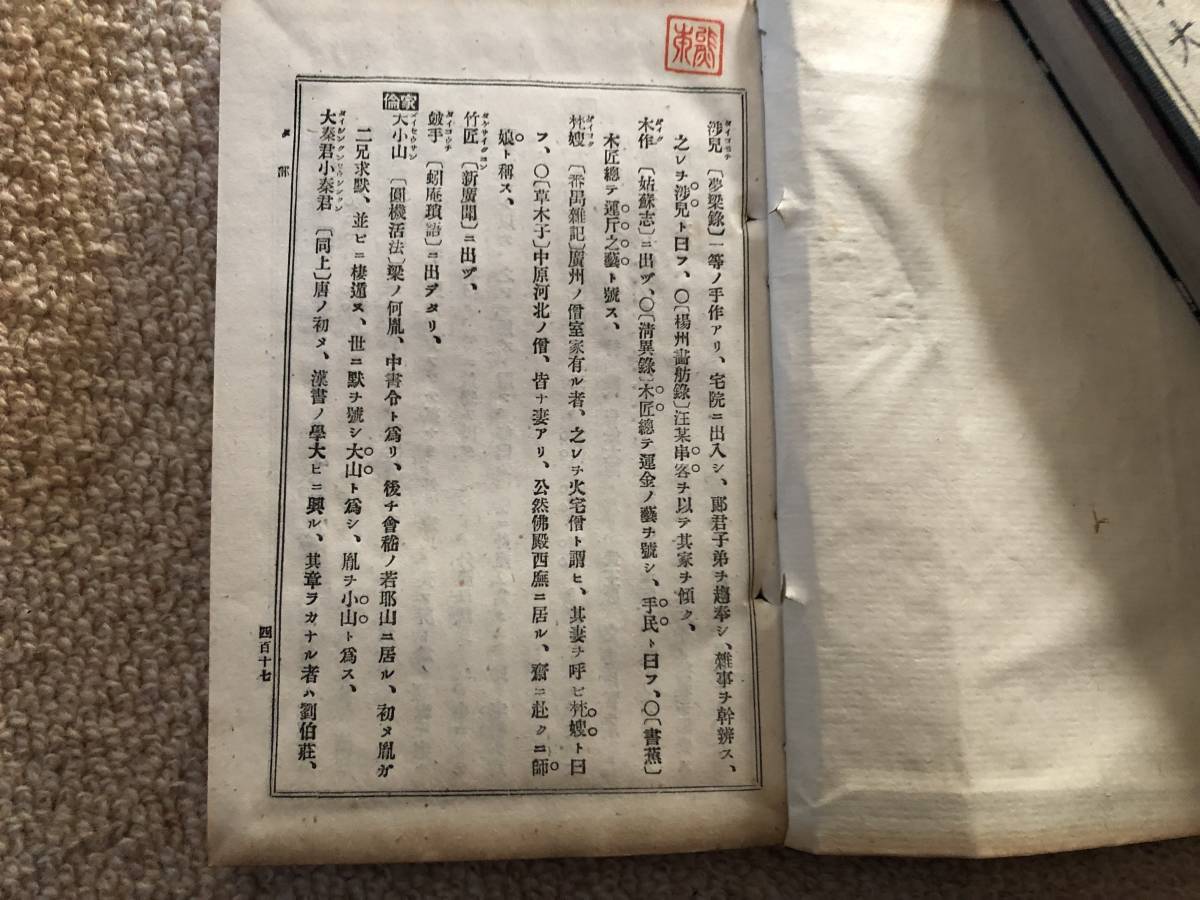 涉兒 〔夢梁錄〕一等ノ手作アリ、宅院ニ出入シ、郎君子弟チ趨奉シ、雜事ヲ幹辨ス、
之レチ涉兒ト曰フ、〇〔楊州畵舫錄〕汪某串客チ以テ其家ヲ傾ク、
木作 〔姑蘇志〕ニ出ヅ、〇〔淸異錄〕木匠總テ運金ノ藝チ號シ、手民ト曰フ、〇〔書蕉〕
木匠總テ運斤之藝ト號ス、
梵嫂 〔番禺雜記〕廣州ノ僧室家有ル者、之レチ火宅僧ト謂ヒ、其妻チ呼ビ梵嫂ト曰
フ、〇〔草木子〕中原河北ノ僧、皆ナ妻アリ、公然佛殿西廡ニ居ル、齋ニ赴クニ師
娘ト稱ス、
竹匠 〔新廣聞〕ニ出ヅ、
皷手 〔蚓庵瑣語〕ニ出デタリ、
家倫
大小山 〔圓機活法〕梁ノ何胤、中書令ト爲リ、後チ會稽ノ若耶山ニ居ル、初メ胤ガ
二兄求默、並ビニ棲遁ス、世ニ默チ號シ大山ト爲シ、胤チ小山ト爲ス、
大秦君小秦君 〔同上〕唐ノ初メ、漢書ノ學大ヒニ興ル、其章ラカナル者ハ劉伯莊、
四百十七
東